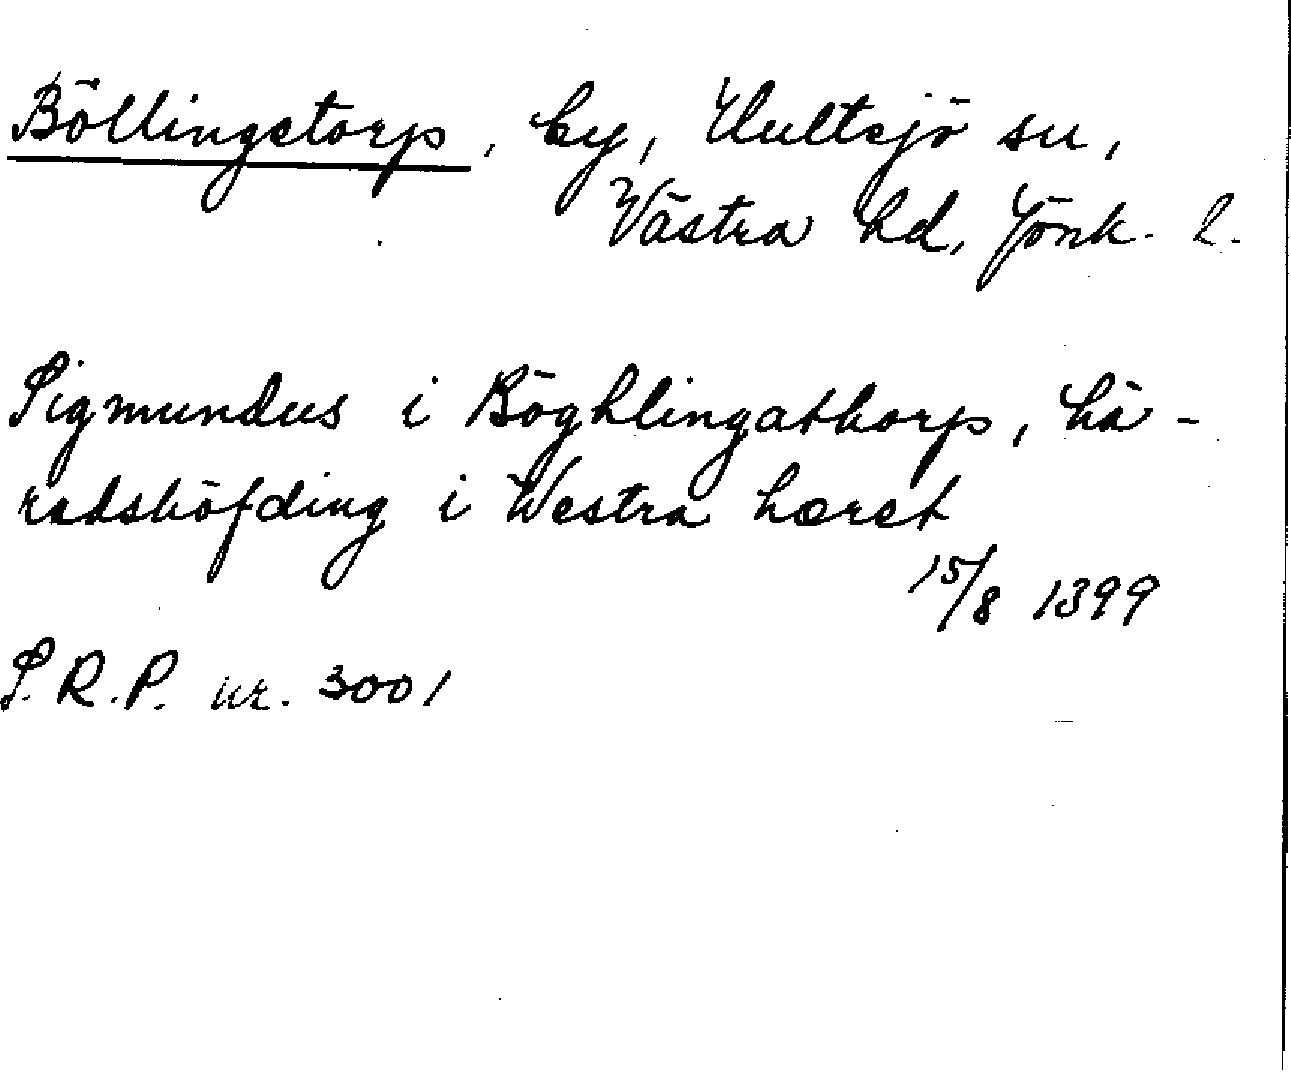 Böllingetorp, by, Hultsjö sn,
Västra hd, Jönk. l.
Sigmundus i Böghlingathorp, hä-
radshöfding i Westra hæret
15/8 1399
S.R.P. nr. 3001